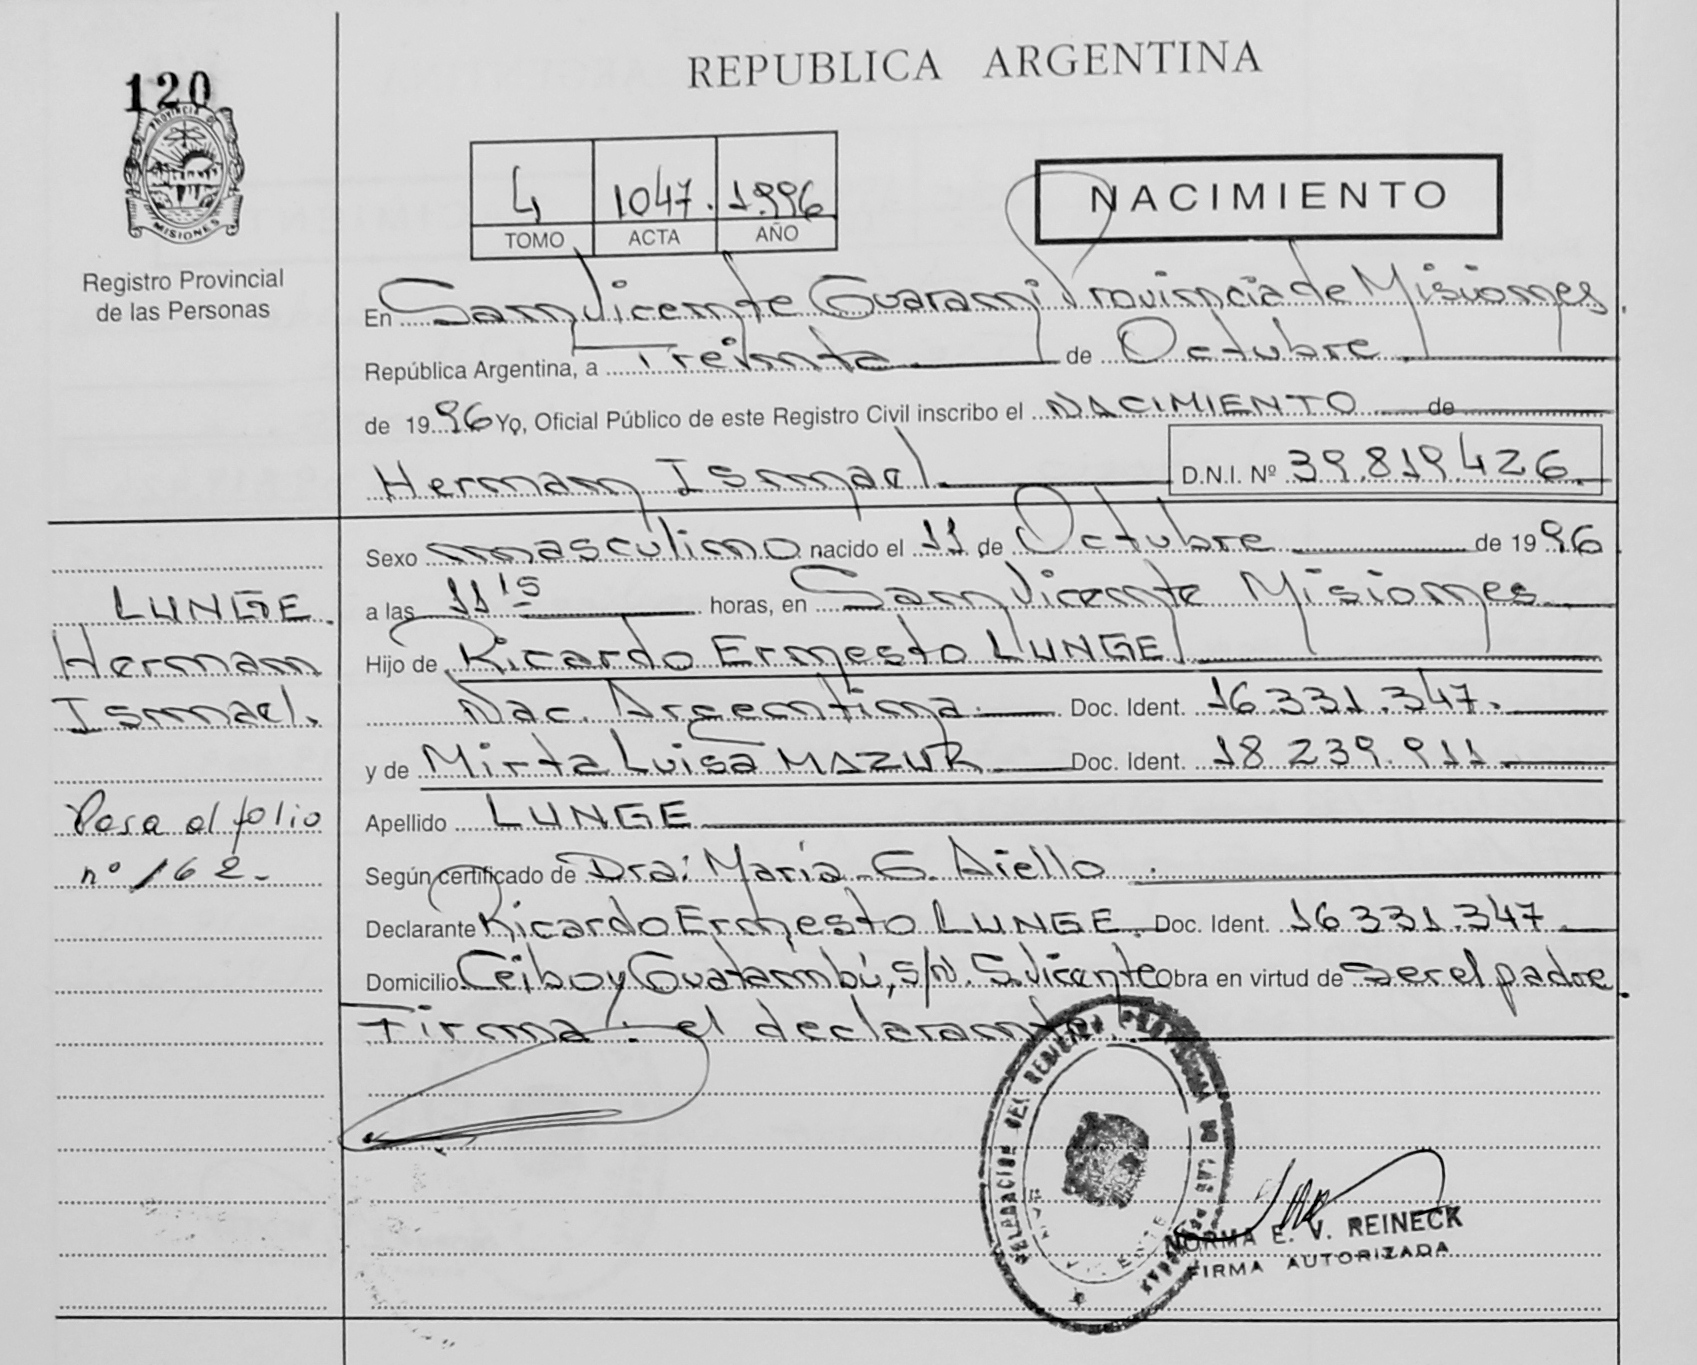 120
PROVINCIA DE
MISIONES
Registro Provincial
de las Personas
REPUBLICA ARGENTINA
4 1047. 1996
TOMO ACTA AÑO
NACIMIENTO
En San Vicente Guarani Provincia de Misiones.
República Argentina, a Treinta de Octubre
de 1996 Yo, Oficial Público de este Registro Civil inscribo el NACIMIENTO de
Hernan Ismael. D.N.I. Nº 39.819.426.
Sexo masculino nacido el 11 de Octubre de 1996
a las 11 15 horas, en San Vicente Misiones
Hijo de Ricardo Ernesto LUNGE
Nac. Argentina. Doc. Ident. 16.331.347.
y de Mirta Luisa MAZUR Doc. Ident. 18 239.911.
Apellido LUNGE
Según certificado de Dra: María G. Aiello.
Declarante Ricardo Ernesto LUNGE. Doc. Ident. 16 331.347.
Domicilio Ceibo y Guatambú, s/N. S. Vicente Obra en virtud de ser el padre.
Firma: el declarante
LUNGE.
Hernan
Ismael.
Pasa al folio
nº 162.-
DELEGACION DEL REGISTRO PROVINCIAL DE LAS PERSONAS
NORMA E. V. REINECK
FIRMA AUTORIZADA